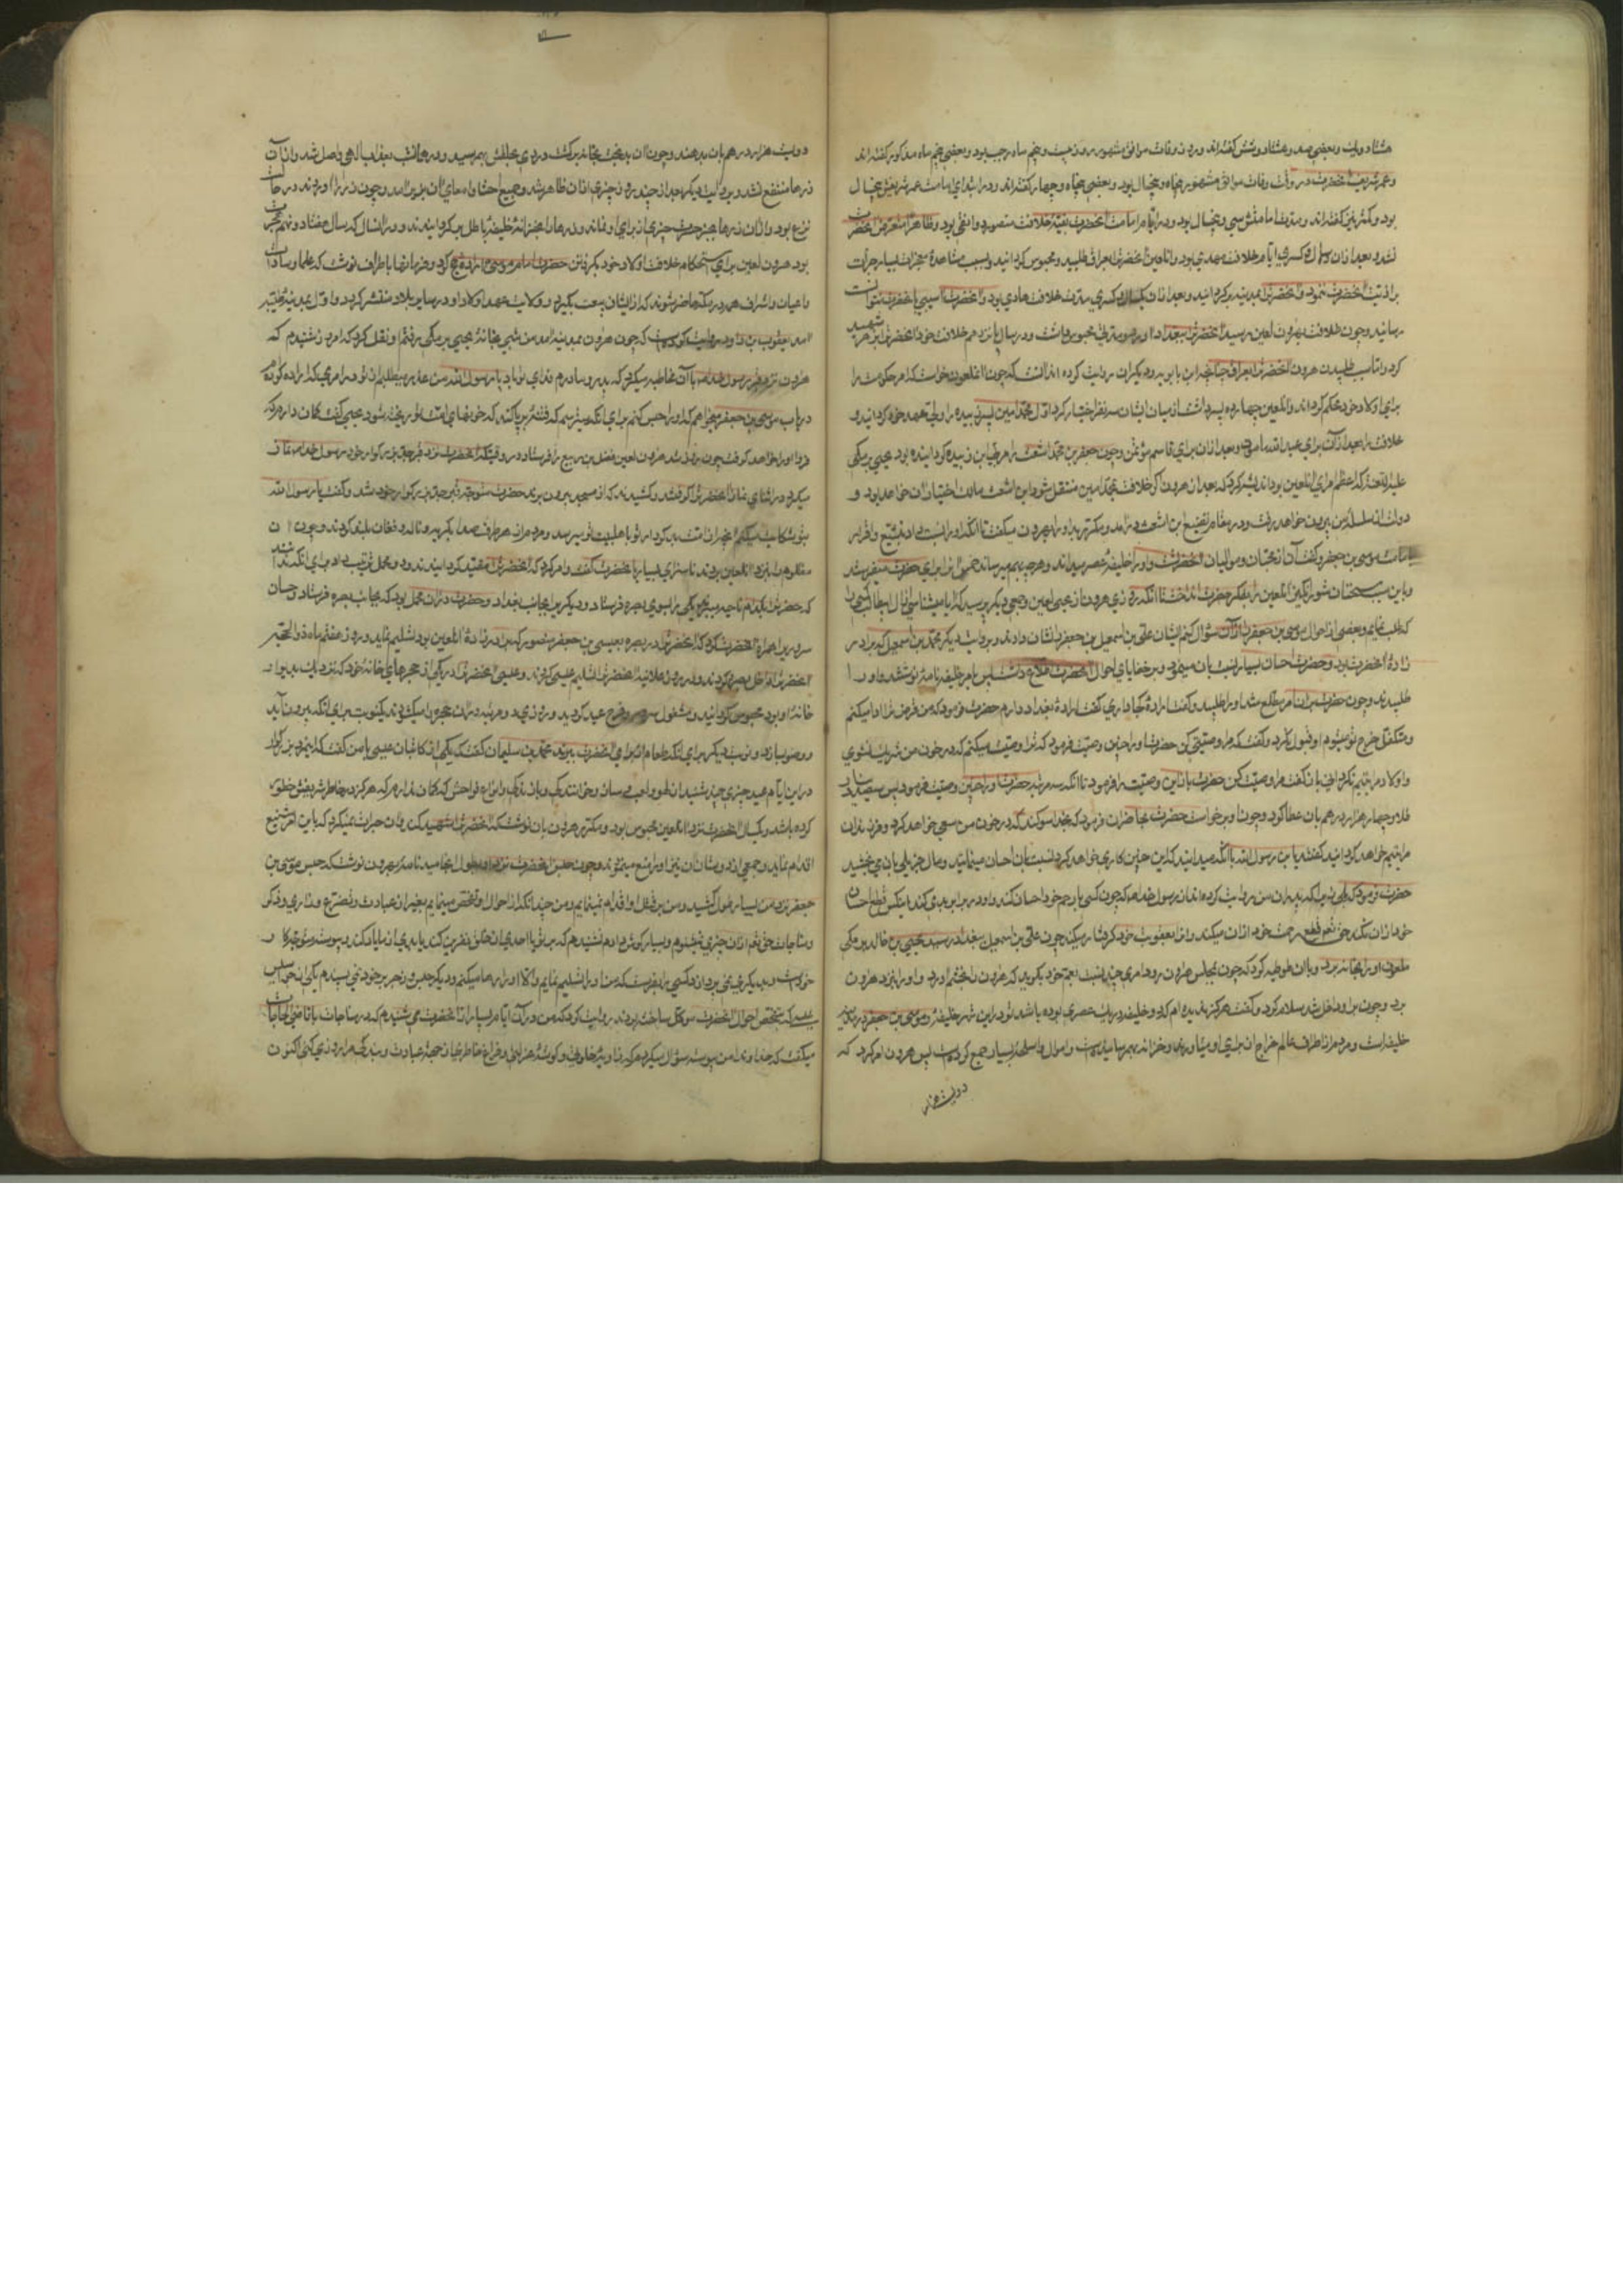 هشتاد و یک و بعضی صد و هشتاد و شش گفته‌اند و روز وفات موافق مشهور روز بیست و پنجم ماه رجب بود و بعضی پنجم ماه مذکور گفته‌اند
و عمر شریف آنحضرت در وقت وفات موافق مشهور پنجاه و پنجسال بود و بعضی پنجاه و چهار گفته‌اند و در ابتدای امامت عمر شریفش بیست سال
بود و کمتر نیز گفته‌اند و مدت امامتش سی و پنجسال بود و در ایام امامت آنحضرت بقیه خلافت منصور دوانقی بود و ظاهرا متعرض آنحضرت
نشد و بعد از آن ده سال و کسری ایام خلافت مهدی بود و آن لعین آنحضرترا بعراق طلبید و محبوس گردانید و بسبب مشاهده معجزات بسیار جرأت
بر اذیت آنحضرت ننمود و آنحضرترا بمدینه برگردانید و بعد از آن یکسال و کسری مدت خلافت هادی بود و آنحضرت آسیبی بآنحضرت نتوانست
رسانید و چون خلافت بهرون لعین رسید آنحضرترا ببغداد آورد و مدتی محبوس داشت و در سال پانزدهم خلافت خود آنحضرترا بزهر شهید
کرد و اما سبب طلبیدن هرون آنحضرترا بعراق چنانچه ابن بابویه و دیگران روایت کرده‌اند آنست که چون آنملعون خواست که امر خلافت را
برای اولاد خود محکم گرداند و آنلعین چهارده پسر داشت از میان ایشان سه نفر اختیار کرد اول محمد امین پسر زبیده را ولیعهد خود گردانید و
خلافت را بعد از آن برای عبدالله مأمون و بعد از آن برای قاسم مؤتمن و چون جعفر بن محمد اشعث را مربی ابن زبیده گردانیده بود یحیی برمکی
دولت از سلسله من بیرون خواهد رفت و در مقام تضییع ابن اشعث درآمد و مکرر بد او را بهرون میگفت تا آنکه او را نسبت داد بتشیع و اقرار
بامامت موسی بن جعفر و گفت آن از محبان و موالیان آنحضرتست و او را خلیفه عصر میداند و هر چه بهم میرساند خمس آنرا برای حضرت میفرستد
که طلب نمایم و بعضی از احوال موسی بن جعفر را از آن سؤال کنم ایشان علی بن اسمعیل بن جعفر را نشان دادند و بروایت دیگر محمد بن اسمعیل که برادر
زاده آنحضرت بود و حضرت احسان بسیار نسبت بآن مینمود و بر خفایای احوال آنحضرت اطلاع داشت پس بامر خلیفه نامه نوشتند و او را
طلبیدند و چون حضرت بر آن امر مطلع شد او را طلبید و گفت اراده کجا داری گفت اراده بغداد دارم حضرت فرمود که من قرض ترا ادا میکنم
و متکفل خرج تو میشوم او قبول نکرد و گفت که مرا وصیتی کن حضرت او را چنین وصیت فرمود که ترا وصیت میکنم که در خون من شریک نشوی
و اولاد مرا یتیم نگردانی باز گفت مرا وصیت کن حضرت باز این وصیت را فرمود تا آنکه سه مرتبه حضرت او را چنین وصیت فرمود پس سیصد دینار
طلا و چهار هزار درهم بآن عطا کرد و چون او برخاست حضرت بحاضران فرمود که بخدا سوگند که در خون من سعی خواهد کرد و فرزندان
مرا یتیم خواهد گردانید گفتند یا بن رسول الله با آنکه میدانید که این چنین کاری خواهد کرد نسبت بآن احسان مینمائید و مال جزیلی بآن می بخشید
خود از آن نکند حق تعالی قطع رحمت خود از آن میکند و او را بعقوبت خود گرفتار میکند چون علی بن اسمعیل ببغداد رسید یحیی بن خالد برمکی
ملعون او را بخانه برد و با آن توطئه کرد که چون بمجلس هرون رود امری چند نسبت بعم خود بگوید که هرون را بخشم آورد و او را بنزد هرون
برد و چون بر او داخل شد سلام کرد و گفت هرگز ندیده‌ام که دو خلیفه در یک عصری بوده باشد تو در این شهر خلیفه و موسی بن جعفر در مدینه
خلیفه است و مردم از اطراف عالم خراج از برای او میآورند و خزانه بهم رسانیده است و اموال و اسلحه بسیار جمع کرده است پس هرون امر کرد که
دویست هزار
دویست هزار درهم بآن بدهند و چون آن بدبخت بخانه برگشت دردی بحلقش بهم رسید و در همانشب بعذاب الهی واصل شد و از آن
زرها منتفع نشد و بروایت دیگر بعد از چند روز زحیری از آن ظاهر شد و جمیع احشاء و امعای آن بزیر آمد و چون زر را آوردند در حالت
نزع بود و از آن زرها بجز حسرت چیزی از برای او نماند و زرها را بخزانه خلیفه باطل برگردانیدند و در آنسال که سال هفتاد و نهم هجرت
بود هرون لعین برای استحکام خلافت اولاد خود بگرفتن حضرت امام موسی اراده حج کرد و فرمانها باطراف نوشت که علما و سادات
و اعیان و اشراف همه در مکه حاضر شوند که از ایشان بیعت بگیرد و ولایت عهد اولاد او در سایر بلاد منتشر گردد و اول بمدینه طیبه
آمد یعقوب بن داود روایت کرده است که چون هرون بمدینه آمد من شبی بخانه یحیی برمکی رفتم او نقل کرد که امروز شنیدم که
هرون نزد قبر رسول خدا با آن مخاطبه میکرد که پدر و مادرم فدای تو باد یا رسول الله من عذر میطلبم از تو در امری که اراده کرده‌ام
در باب موسی بن جعفر میخواهم که او را حبس کنم برای آنکه میترسم که فتنه برپا کند که خونهای امت تو ریخته شود یحیی گفت گمان دارم که
فردا او را خواهد گرفت چون روز شد هرون لعین فضل بن ربیع را فرستاد در وقتیکه آنحضرت نزد قبر جد بزرگوار خود رسول خدا نماز
میکرد در اثنای نماز آنحضرترا گرفتند و کشیدند که از مسجد بیرون برند حضرت متوجه قبر جد بزرگوار خود شد و گفت یا رسول الله
بتو شکایت میکنم آنچه از امت بدکردار تو باهلبیت تو میرسد و مردم از هر طرف صدا بگریه و ناله و فغان بلند کردند و چون آن
که حضرت بکدام ناحیه میبرند یکی را بسوی بصره فرستاد و دیگری را بجانب بغداد و حضرت در آن محمل بود که بجانب بصره فرستاد و حسان
سروی را همراه آنحضرت کرد که آنحضرترا در بصره بعیسی بن جعفر منصور که برادرزاده آنلعین بود تسلیم نماید و روز هفتم ماه ذوالحجه
آنحضرترا داخل بصره کردند و در روز علانیه آنحضرترا تسلیم عیسی کردند و عیسی آنحضرترا در یکی از حجرهای خانه خود که نزدیک بدیوان
خانه او بود محبوس گردانید و مشغول سرور و فرح عید گردید و روزی دو مرتبه در آن حجره را میگشودند یکنوبت برای آنکه بیرون آید
و وضو بسازد و نوبت دیگر برای آنکه طعام از برای آنحضرت ببرند محمد بن سلیمان گفت که یکی از کاتبان عیسی با من گفت که این مرد بزرگوار
در این ایام عید چیزی چند شنید از لهو و لعب و ساز و خوانندگی و انواع فواحش که گمان ندارم که هرگز در خاطر شریفش خطور
کرده باشد و یکسال آنحضرت نزد آنلعین محبوس بود و مکرر هرون بآن نوشت که آنحضرترا شهید کند و آن جرأت نمیکرد که باین امر شنیع
اقدام نماید و جمعی از دوستان آن نیز او را منع مینمودند و چون حبس آنحضرت نزد او بطول انجامید نامه بهرون نوشت که حبس موسی بن
جعفر نزد من بسیار بطول کشید و من بر قتل او اقدام نمینمایم و من چندانکه از احوال او تفحص مینمایم بغیر از عبادت و تضرع و زاری و ذکر
و مناجات حق تعالی از آن چیزی نمیشنوم و بسیار گوش دادم نشنیدم که بر تو یا احدی از خلق نفرین کند یا بدی از ما یاد کند و پیوسته متوجه کار
خود است و بدیگری نمی پردازد کسی را بفرست که من او را تسلیم نمایم و الا او را رها میکنم و دیگر حبس و زجر بر خود نمی پسندم یکی از جواسیس
عیسی که بتفحص احوال آنحضرت موکل ساخته بودند روایت کرد که من در آن ایام بسیار از آنحضرت می شنیدم که در مناجات با قاضی الحاجات
میگفت که خداوندا من پیوسته سؤال میکردم که زاویه خلوتی و گوشه عزلتی و فراغ خاطری از جهه عبادت و بندگی مرا روزی کنی اکنون